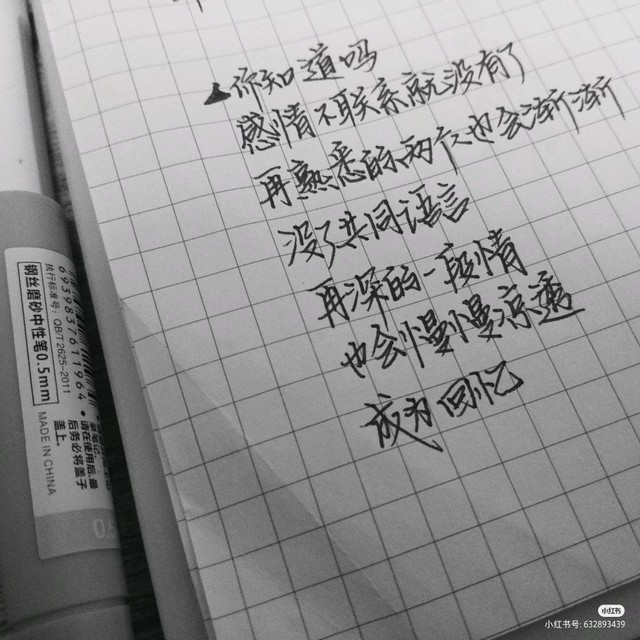 你知道吗
感情不联系就没有了
再熟悉的两个人也会渐渐
没了共同语言
再深的一段情
也会慢慢凉透
成为回忆
6931983761964
执行标准号: QB/T2625-2011
钢丝磨砂中性笔0.5mm
MADE IN CHINA
请在使用后,最
后务必将盖子
盖上。
小红书
小红书号: 632893439